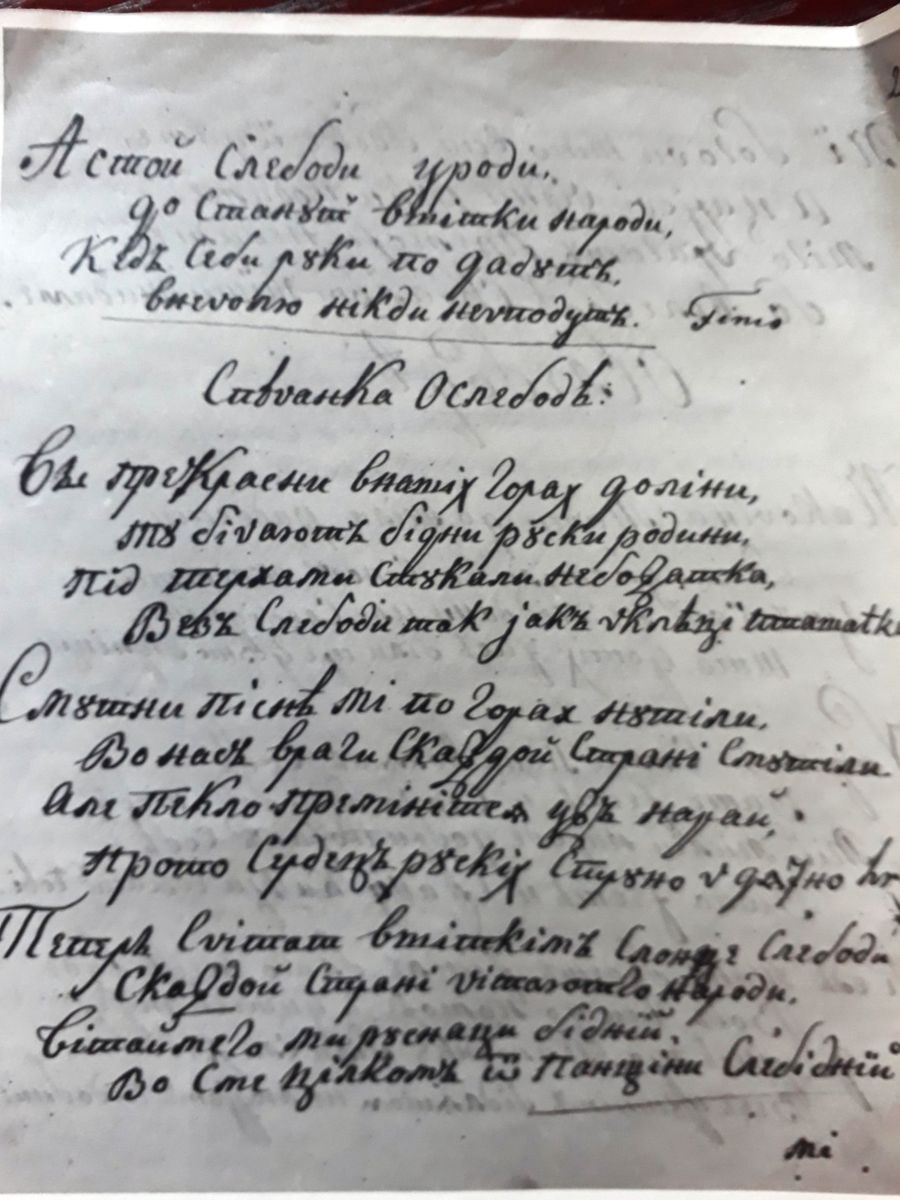 А стой Слебоди уроди,
до Станутъ втішки народи,
Кедъ Себи руки по дадутъ,
вневолю нікди неуподутъ. Finis
Співанка О слебодѣ:
Въ прекрасни внаших Горах доліни,
ту біваютъ бідни руски родини,
під шерхами Стукали небожатка,
Безъ Слебоди так јакъ вклѣці пташатка
Смутни піснѣ мі по Горах нутіли,
Во насъ враги Скаждой Страні Смутіли
Але пекло премінітся ужъ нарай,
прото Сердецъ рускіх Струно удачно
Теперь Світат втішкімъ Слонце Слебоди
Скаждой Страні вітаютъго народи,
вітаймего ми руснаци бідніи,
Во Сме Цілкомъ ѿ Панщіни Слебідніи
мі